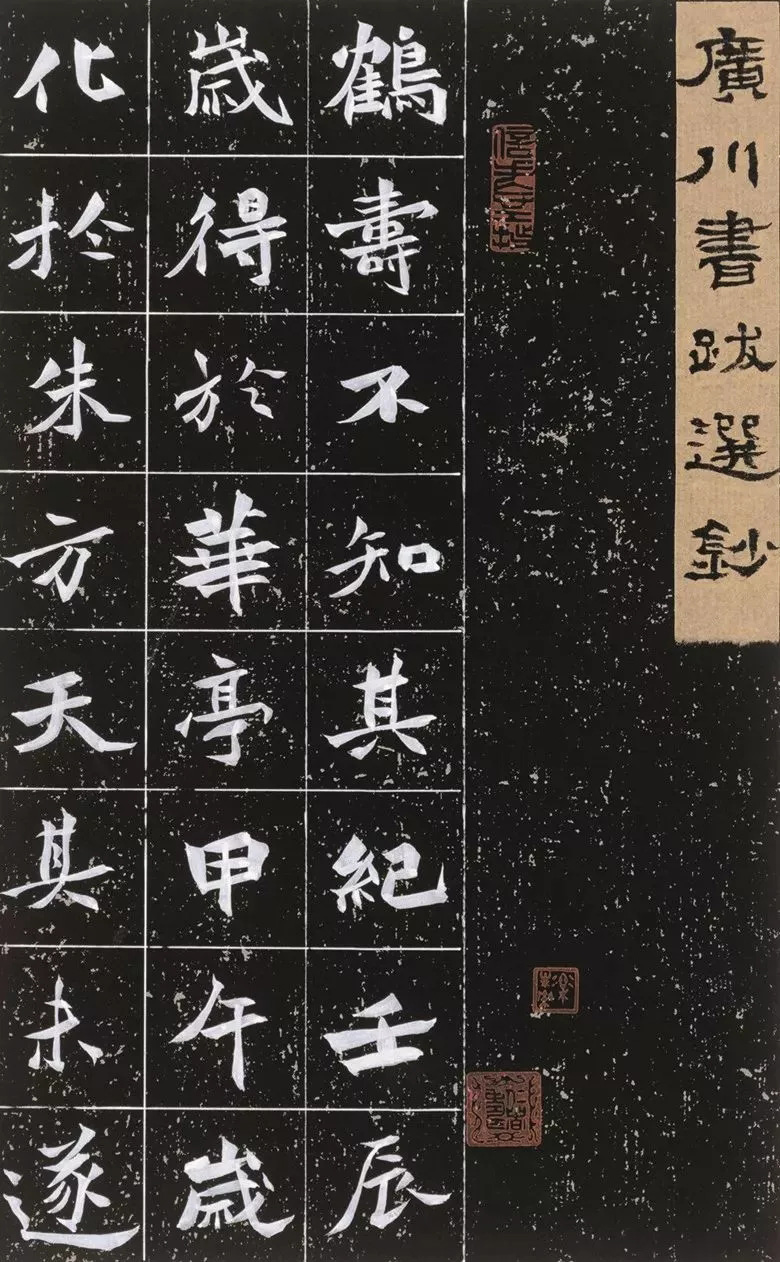 廣川書跋選鈔
鶴壽不知其紀壬辰
歲得於華亭甲午歲
化於朱方天其未遂